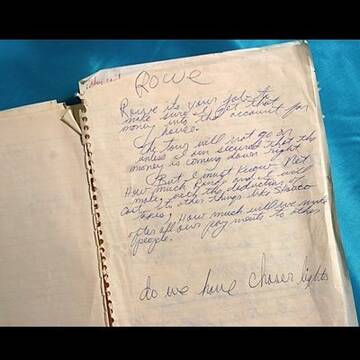 Rowe
Rowe its your job to
make sure I get that
money into the account for
house.
The tour will not go on
unless I am assured that the
money is coming down right
But I must know Net
How much Kind and it will
make, with the deduction of
cost to other things like
taxes, How much will we make
after all our payments to other
people.
do we have chaser lights